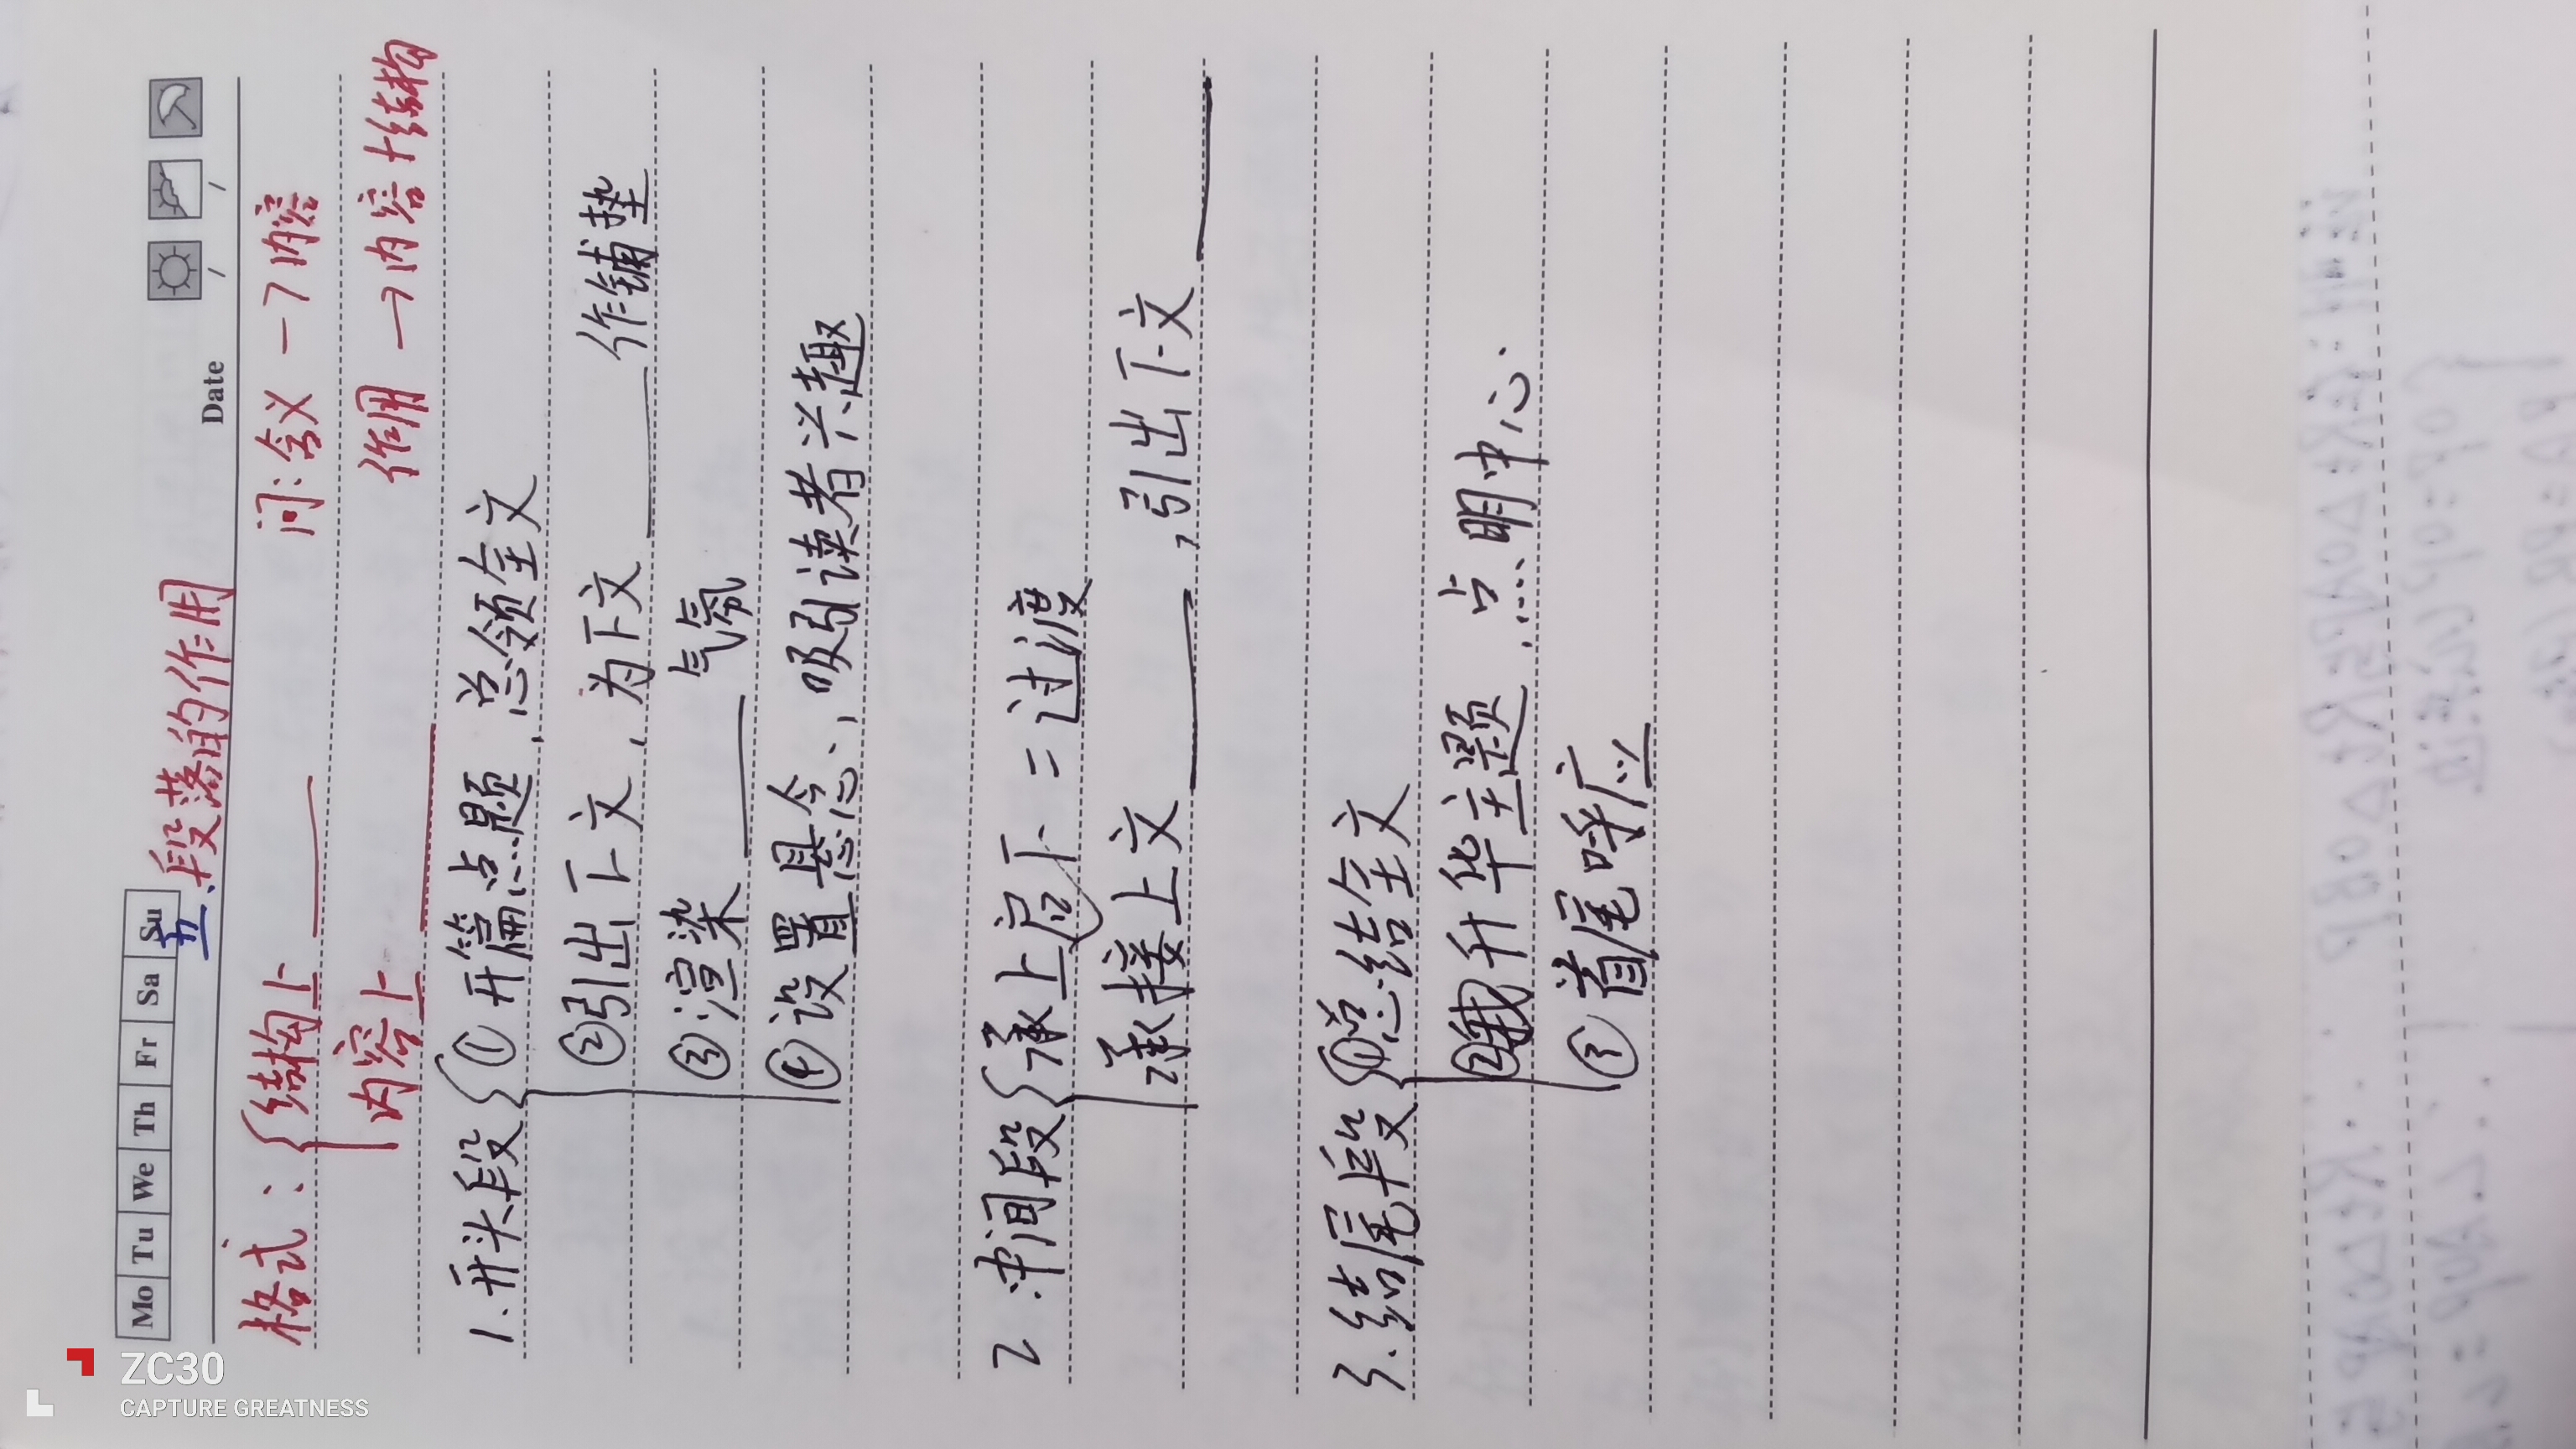 Mo Tu We Th Fr Sa Su
Date / /
五、段落的作用
格式：{结构上____ 问：含义→内容
内容上____ 作用→内容+结构
1.开头段{①开篇点题，总领全文
②引出下文，为下文____作铺垫
③渲染____气氛
④设置悬念，吸引读者兴趣
2.中间段{承上启下=过渡
承接上文____，引出下文____
3.结尾段{①总结全文
②升华主题，点明中心.
③首尾呼应
ZC30
CAPTURE GREATNESS